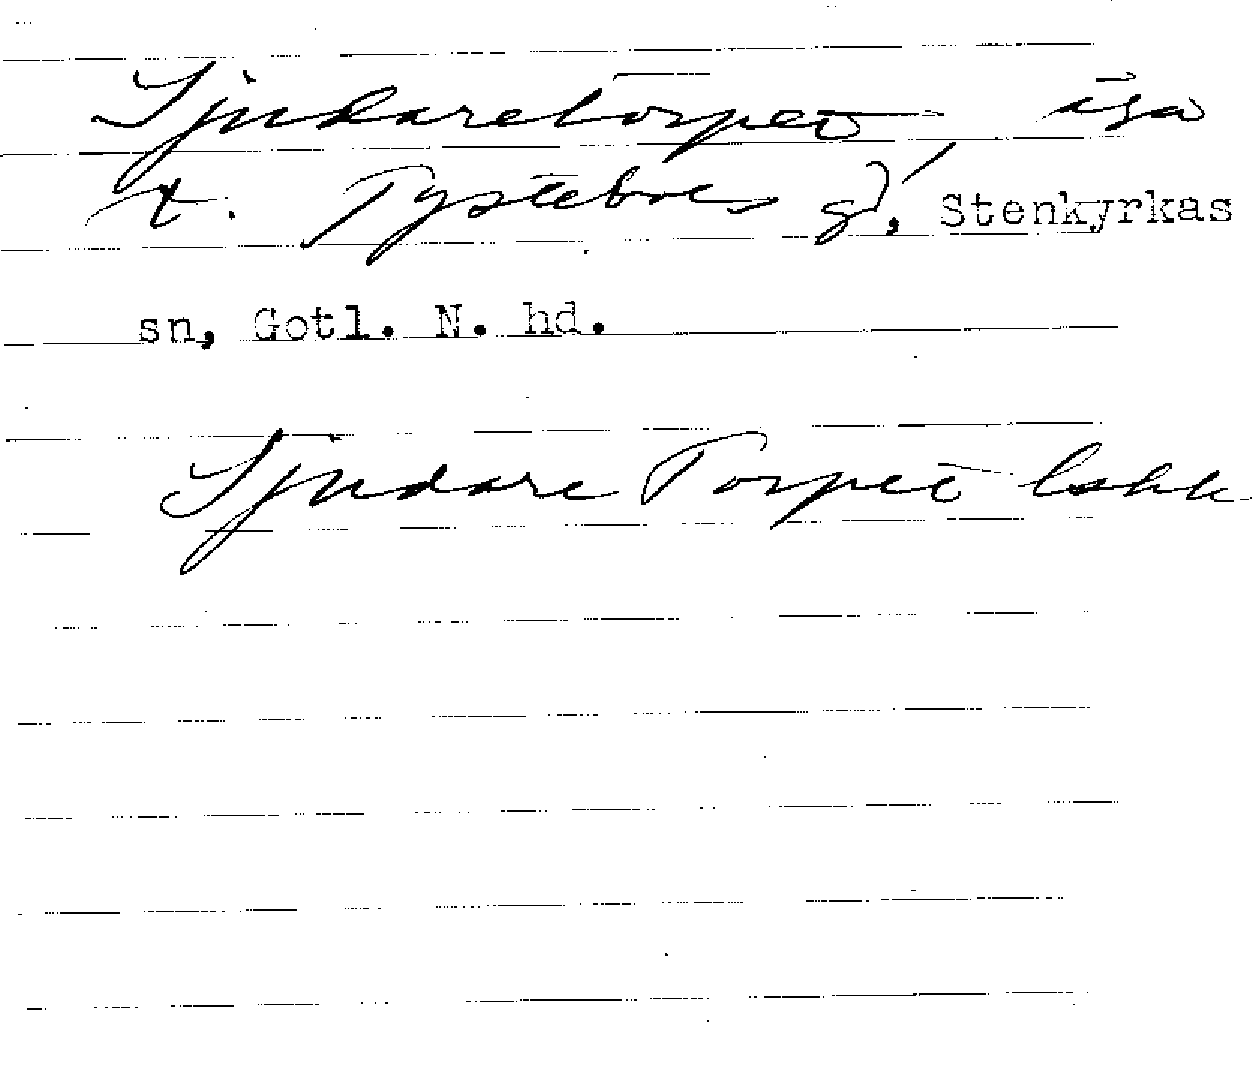 Sjudaretorpet äga
t. Tystebols gd, Stenkyrkas
sn, Gotl. N. hd.
Sjudare Torpet